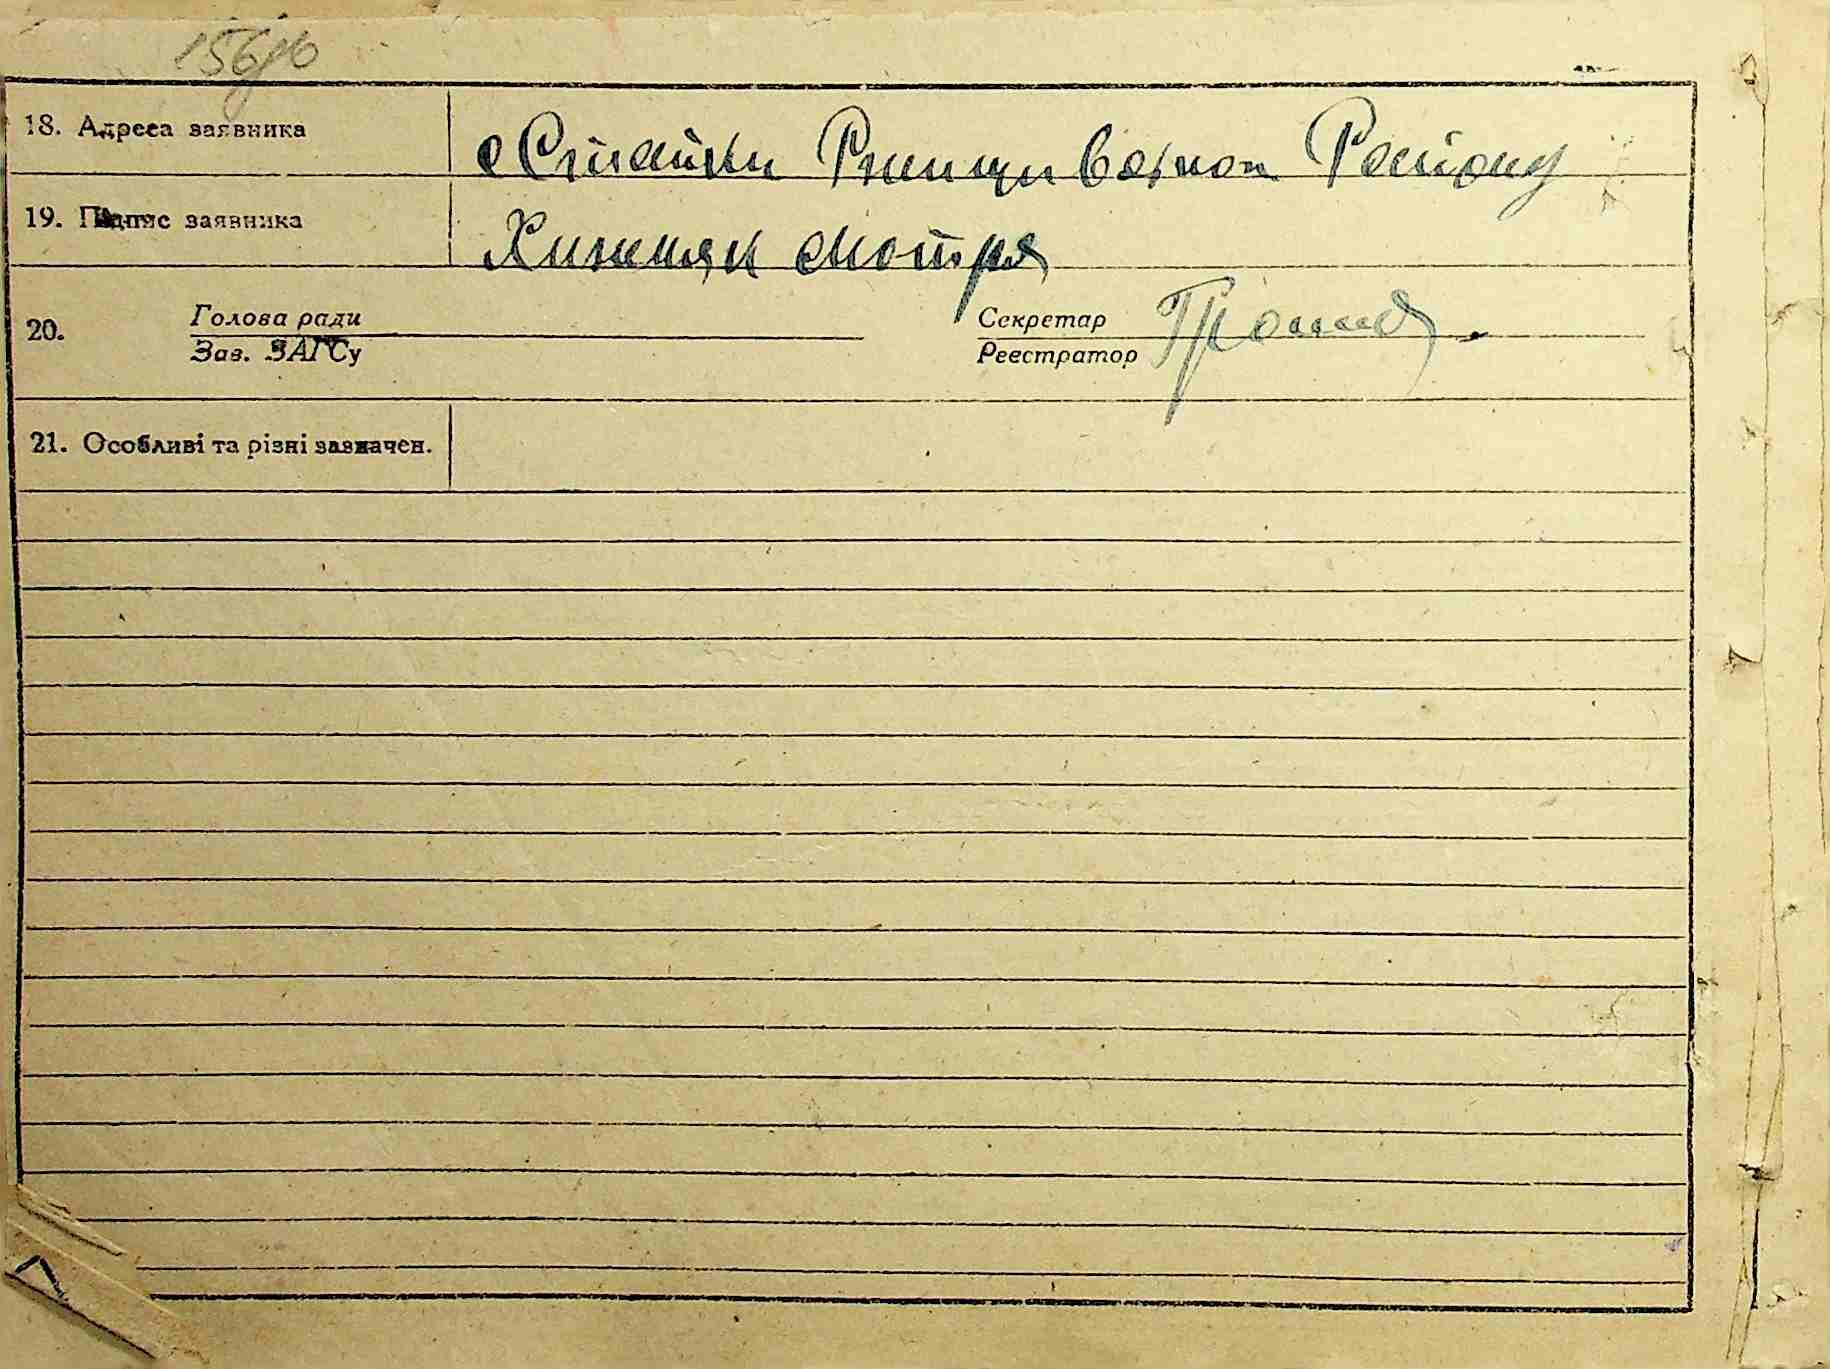 18. Адреса заявника с Стайки Ржищивськог Району
19. Підпис заявника Хижняк Мотря
20. Голова ради Секретар
Зав. ЗАГСу Реєстратор
21. Особливі та різні зазначен.